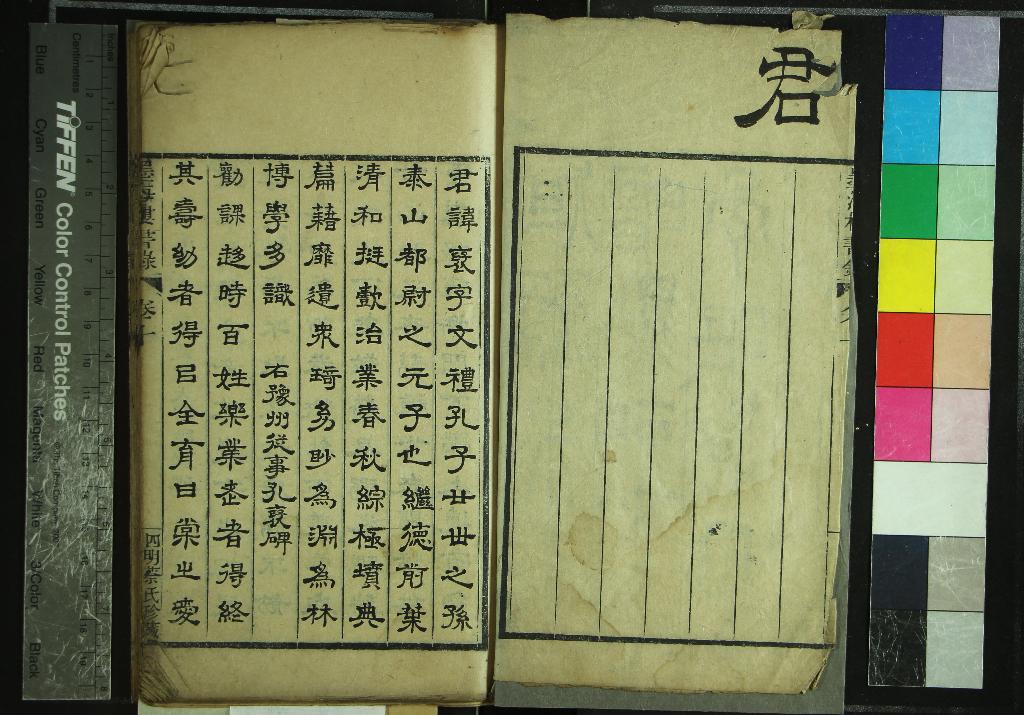 君
君諱裦字文禮孔子廿世之孫
泰山都尉之元子也繼德前葉
清和挺歖治業春秋綜極墳典
篇藉靡遺衆琦多眇為淵為林
博學多識 右豫州從事孔裦碑
勸課趍時百姓樂業老者得終
其壽幼者得㠯全育甘棠之愛
四明蔡氏珍藏
TIFFEN Color Control Patches
Centimetres
Inches
Blue Cyan Green Yellow Red Magenta White 3/Color Black